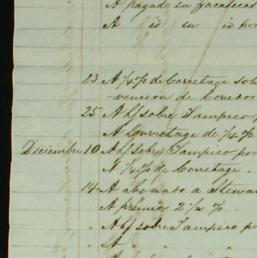 A pagado en Zacatecas
A id en id
23 A ¼ % de Corretage sob
vencion de Corredor
25 A L/ sobre Tampico p
A Corretage de ¼ %
Diciembre 10 A L/ sobre Tampico por
A ¼ % de Corretage.
14 A abonado a Stewar
A premio 2 ½ %
" A L/ sobre Tampico po
" A